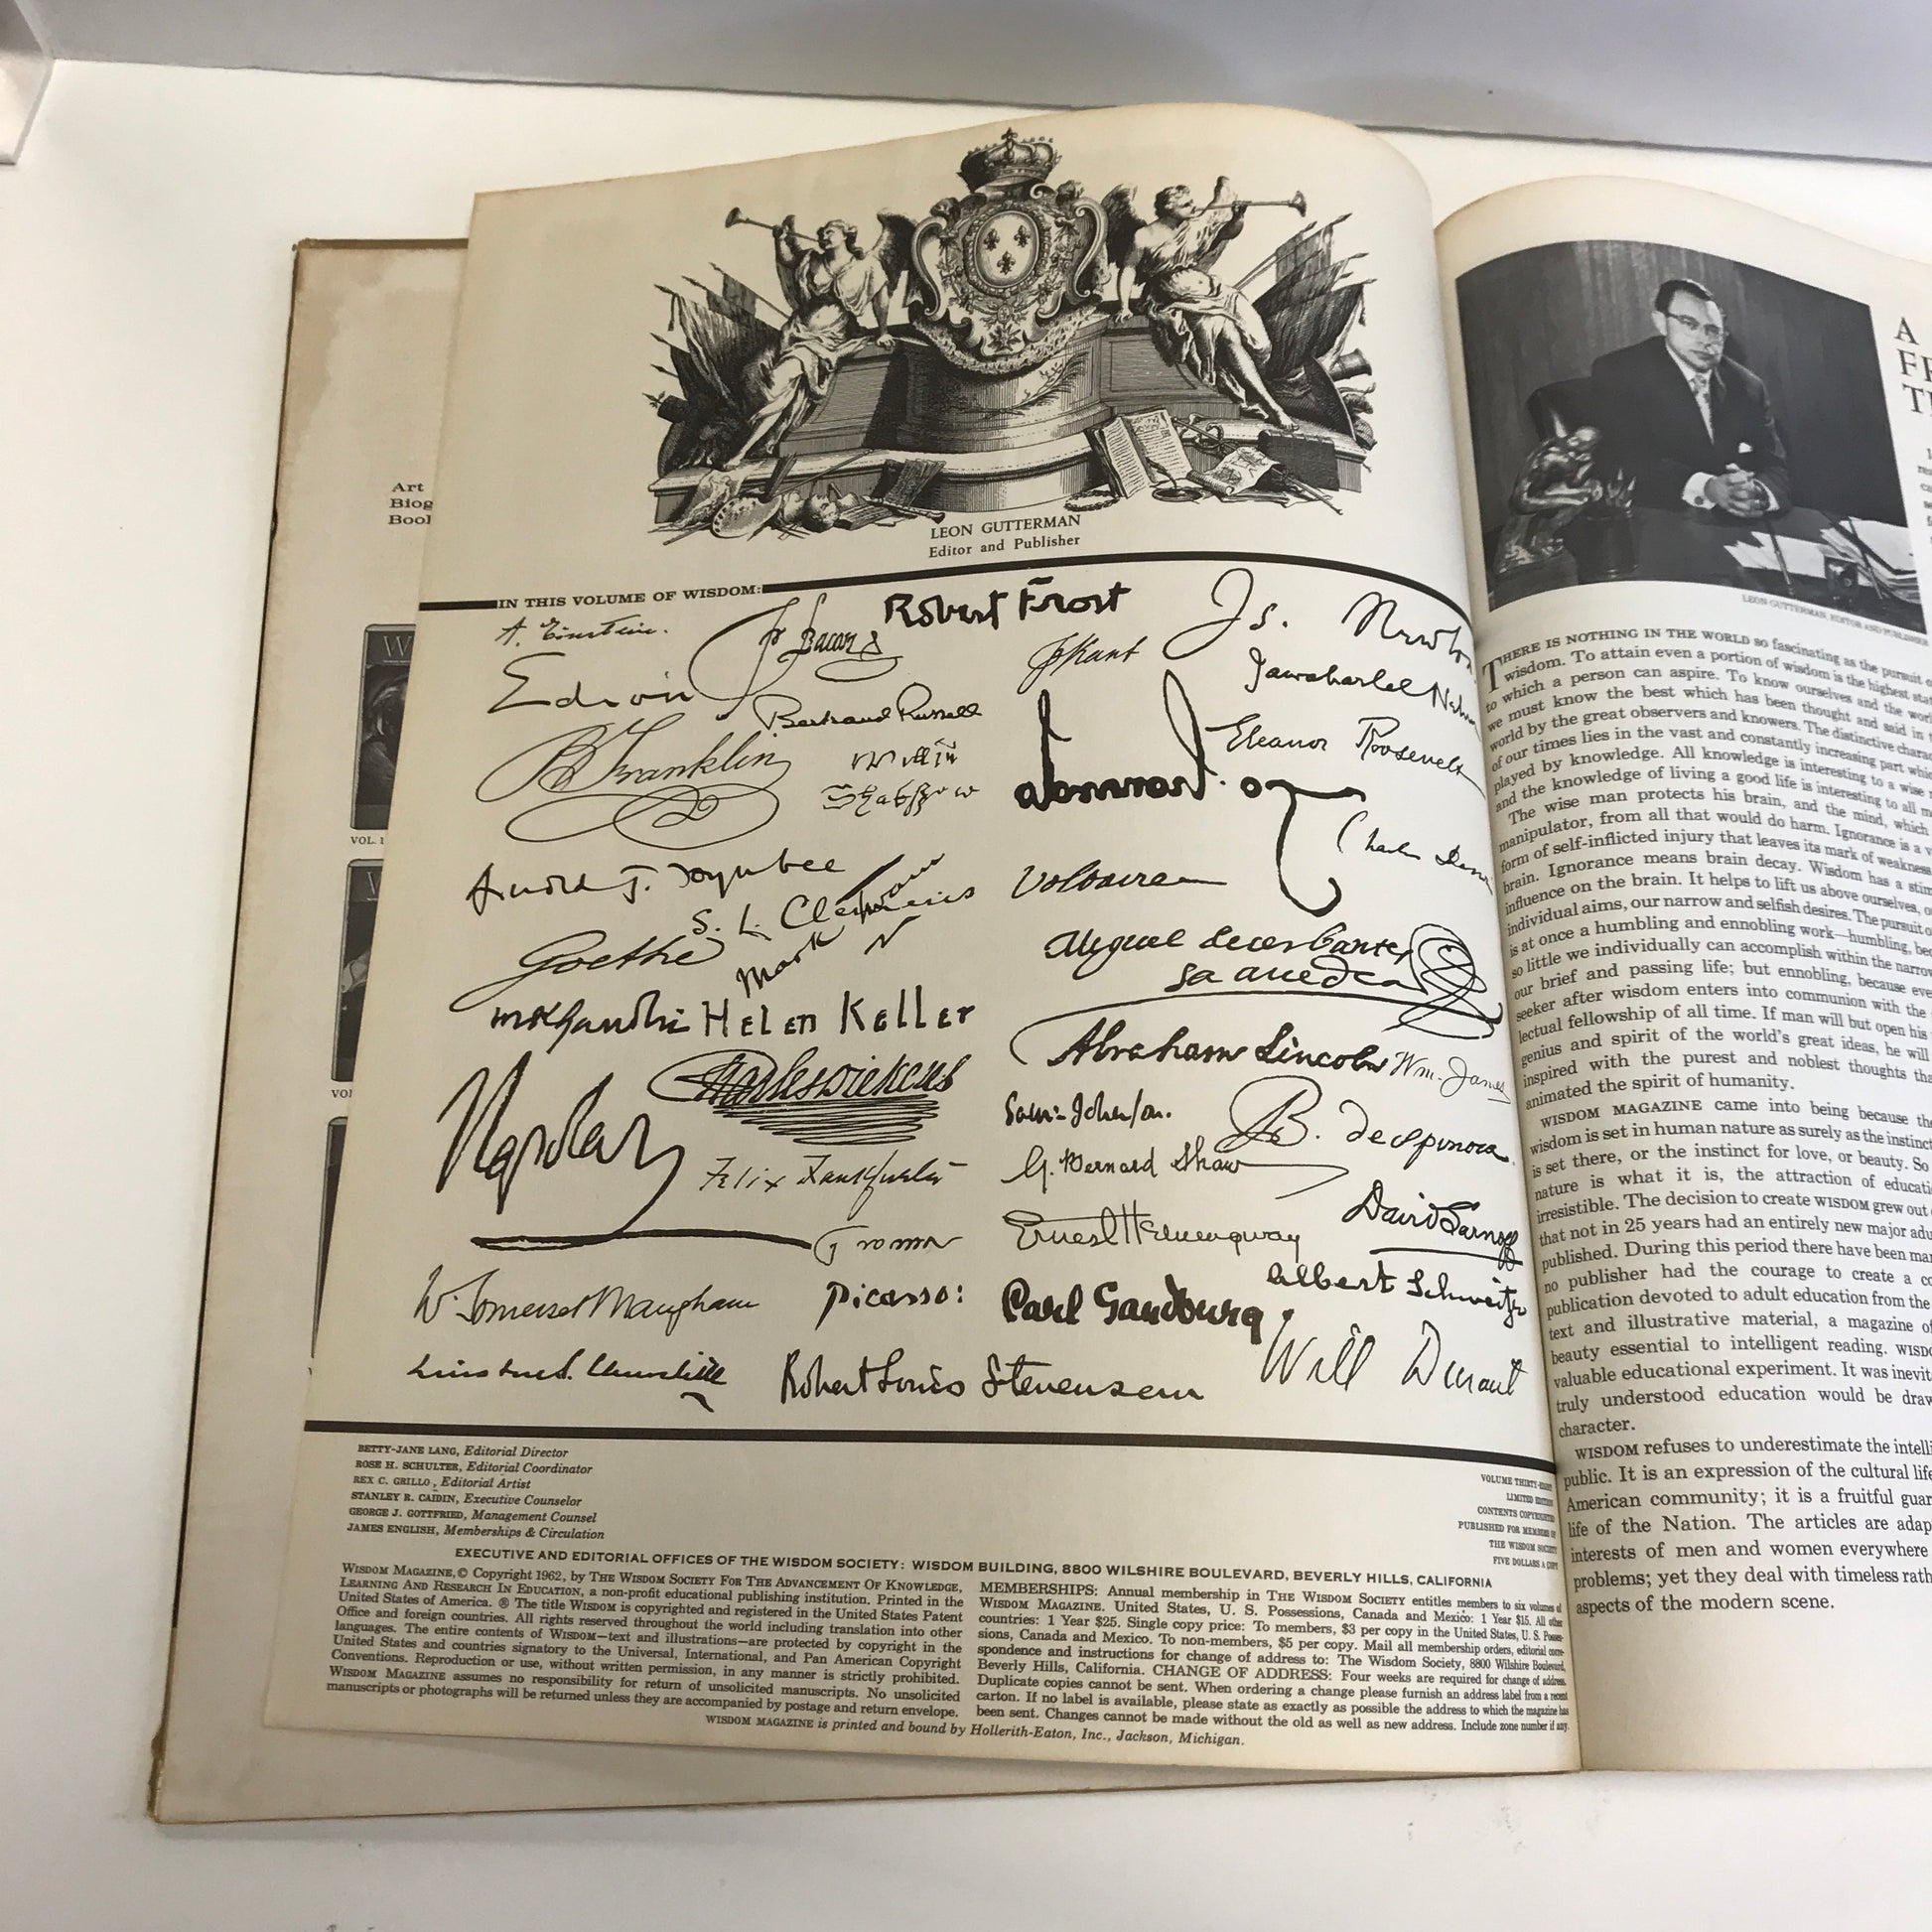 Art
Biog
Book
VOL. 1
LEON GUTTERMAN
Editor and Publisher
IN THIS VOLUME OF WISDOM:
A. Einstein.
Bacon
Robert Frost
Js. Newton
Edison
Bertrand Russell
Kant
Jawaharlal Nehru
B Franklin
Eleanor Roosevelt
Arnold J. Toynbee
S. L. Clemens
Mark Twain
Voltaire
Charles Darwin
Goethe
Miguel de cerbantes
saauedra
mkGandhi
Helen Keller
Abraham Lincoln
Wm. James
Charles Dickens
Sam: Johnson.
B. despinoza
Napoleon
Felix Frankfurter
G. Bernard Shaw
David Sarnoff
Ernest Hemingway
Albert Schweitzer
W. Somerset Maugham
Picasso:
Carl Sandburg
Winston S. Churchill
Robert Louis Stevenson
Will Durant
BETTY-JANE LANG, Editorial Director
ROSE H. SCHULTER, Editorial Coordinator
REX C. GRILLO, Editorial Artist
STANLEY R. CAIDIN, Executive Counselor
GEORGE J. GOTTFRIED, Management Counsel
JAMES ENGLISH, Memberships & Circulation
VOLUME THIRTY-EIGHT
LIMITED EDITION
CONTENTS COPYRIGHTED
PUBLISHED FOR MEMBERS OF
THE WISDOM SOCIETY
FIVE DOLLARS A COPY
EXECUTIVE AND EDITORIAL OFFICES OF THE WISDOM SOCIETY: WISDOM BUILDING, 8800 WILSHIRE BOULEVARD, BEVERLY HILLS, CALIFORNIA
WISDOM MAGAZINE, © Copyright 1962, by THE WISDOM SOCIETY FOR THE ADVANCEMENT OF KNOWLEDGE,
LEARNING AND RESEARCH IN EDUCATION, a non-profit educational publishing institution. Printed in the
United States of America. ® The title WISDOM is copyrighted and registered in the United States Patent
Office and foreign countries. All rights reserved throughout the world including translation into other
languages. The entire contents of WISDOM—text and illustrations—are protected by copyright in the
United States and countries signatory to the Universal, International, and Pan American Copyright
Conventions. Reproduction or use, without written permission, in any manner is strictly prohibited.
WISDOM MAGAZINE assumes no responsibility for return of unsolicited manuscripts. No unsolicited
manuscripts or photographs will be returned unless they are accompanied by postage and return envelope.
MEMBERSHIPS: Annual membership in THE WISDOM SOCIETY entitles members to six volumes of
WISDOM MAGAZINE. United States, U. S. Possessions, Canada and Mexico: 1 Year $15. All other
countries: 1 Year $25. Single copy price: To members, $3 per copy in the United States, U. S. Posses-
sions, Canada and Mexico. To non-members, $5 per copy. Mail all membership orders, editorial corre-
spondence and instructions for change of address to: The Wisdom Society, 8800 Wilshire Boulevard,
Beverly Hills, California. CHANGE OF ADDRESS: Four weeks are required for change of address.
Duplicate copies cannot be sent. When ordering a change please furnish an address label from a recent
carton. If no label is available, please state as exactly as possible the address to which the magazine has
been sent. Changes cannot be made without the old as well as new address. Include zone number if any.
WISDOM MAGAZINE is printed and bound by Hollerith-Eaton, Inc., Jackson, Michigan.
LEON GUTTERMAN, EDITOR AND PUBLISHER
A
THERE IS NOTHING IN THE WORLD so fascinating as the pursuit
wisdom. To attain even a portion of wisdom is the highest
to which a person can aspire. To know ourselves and the
we must know the best which has been thought and said in
world by the great observers and knowers. The distinctive
of our times lies in the vast and constantly increasing part
played by knowledge. All knowledge is interesting to a wise
and the knowledge of living a good life is interesting to all
The wise man protects his brain, and the mind, which
manipulator, from all that would do harm. Ignorance is a
form of self-inflicted injury that leaves its mark of weakness
brain. Ignorance means brain decay. Wisdom has a
influence on the brain. It helps to lift us above ourselves,
individual aims, our narrow and selfish desires. The pursuit
is at once a humbling and ennobling work—humbling,
so little we individually can accomplish within the narrow
our brief and passing life; but ennobling, because
seeker after wisdom enters into communion with the
lectual fellowship of all time. If man will but open his
genius and spirit of the world's great ideas, he will
inspired with the purest and noblest thoughts
animated the spirit of humanity.
WISDOM MAGAZINE came into being because
wisdom is set in human nature as surely as the instinct
is set there, or the instinct for love, or beauty. So
nature is what it is, the attraction of
irresistible. The decision to create WISDOM grew out
that not in 25 years had an entirely new major
published. During this period there have been
no publisher had the courage to create a
publication devoted to adult education from the
text and illustrative material, a magazine of
beauty essential to intelligent reading.
valuable educational experiment. It was
truly understood education would be
character.
WISDOM refuses to underestimate the
public. It is an expression of the cultural life
American community; it is a fruitful
life of the Nation. The articles are
interests of men and women everywhere
problems; yet they deal with timeless
aspects of the modern scene.